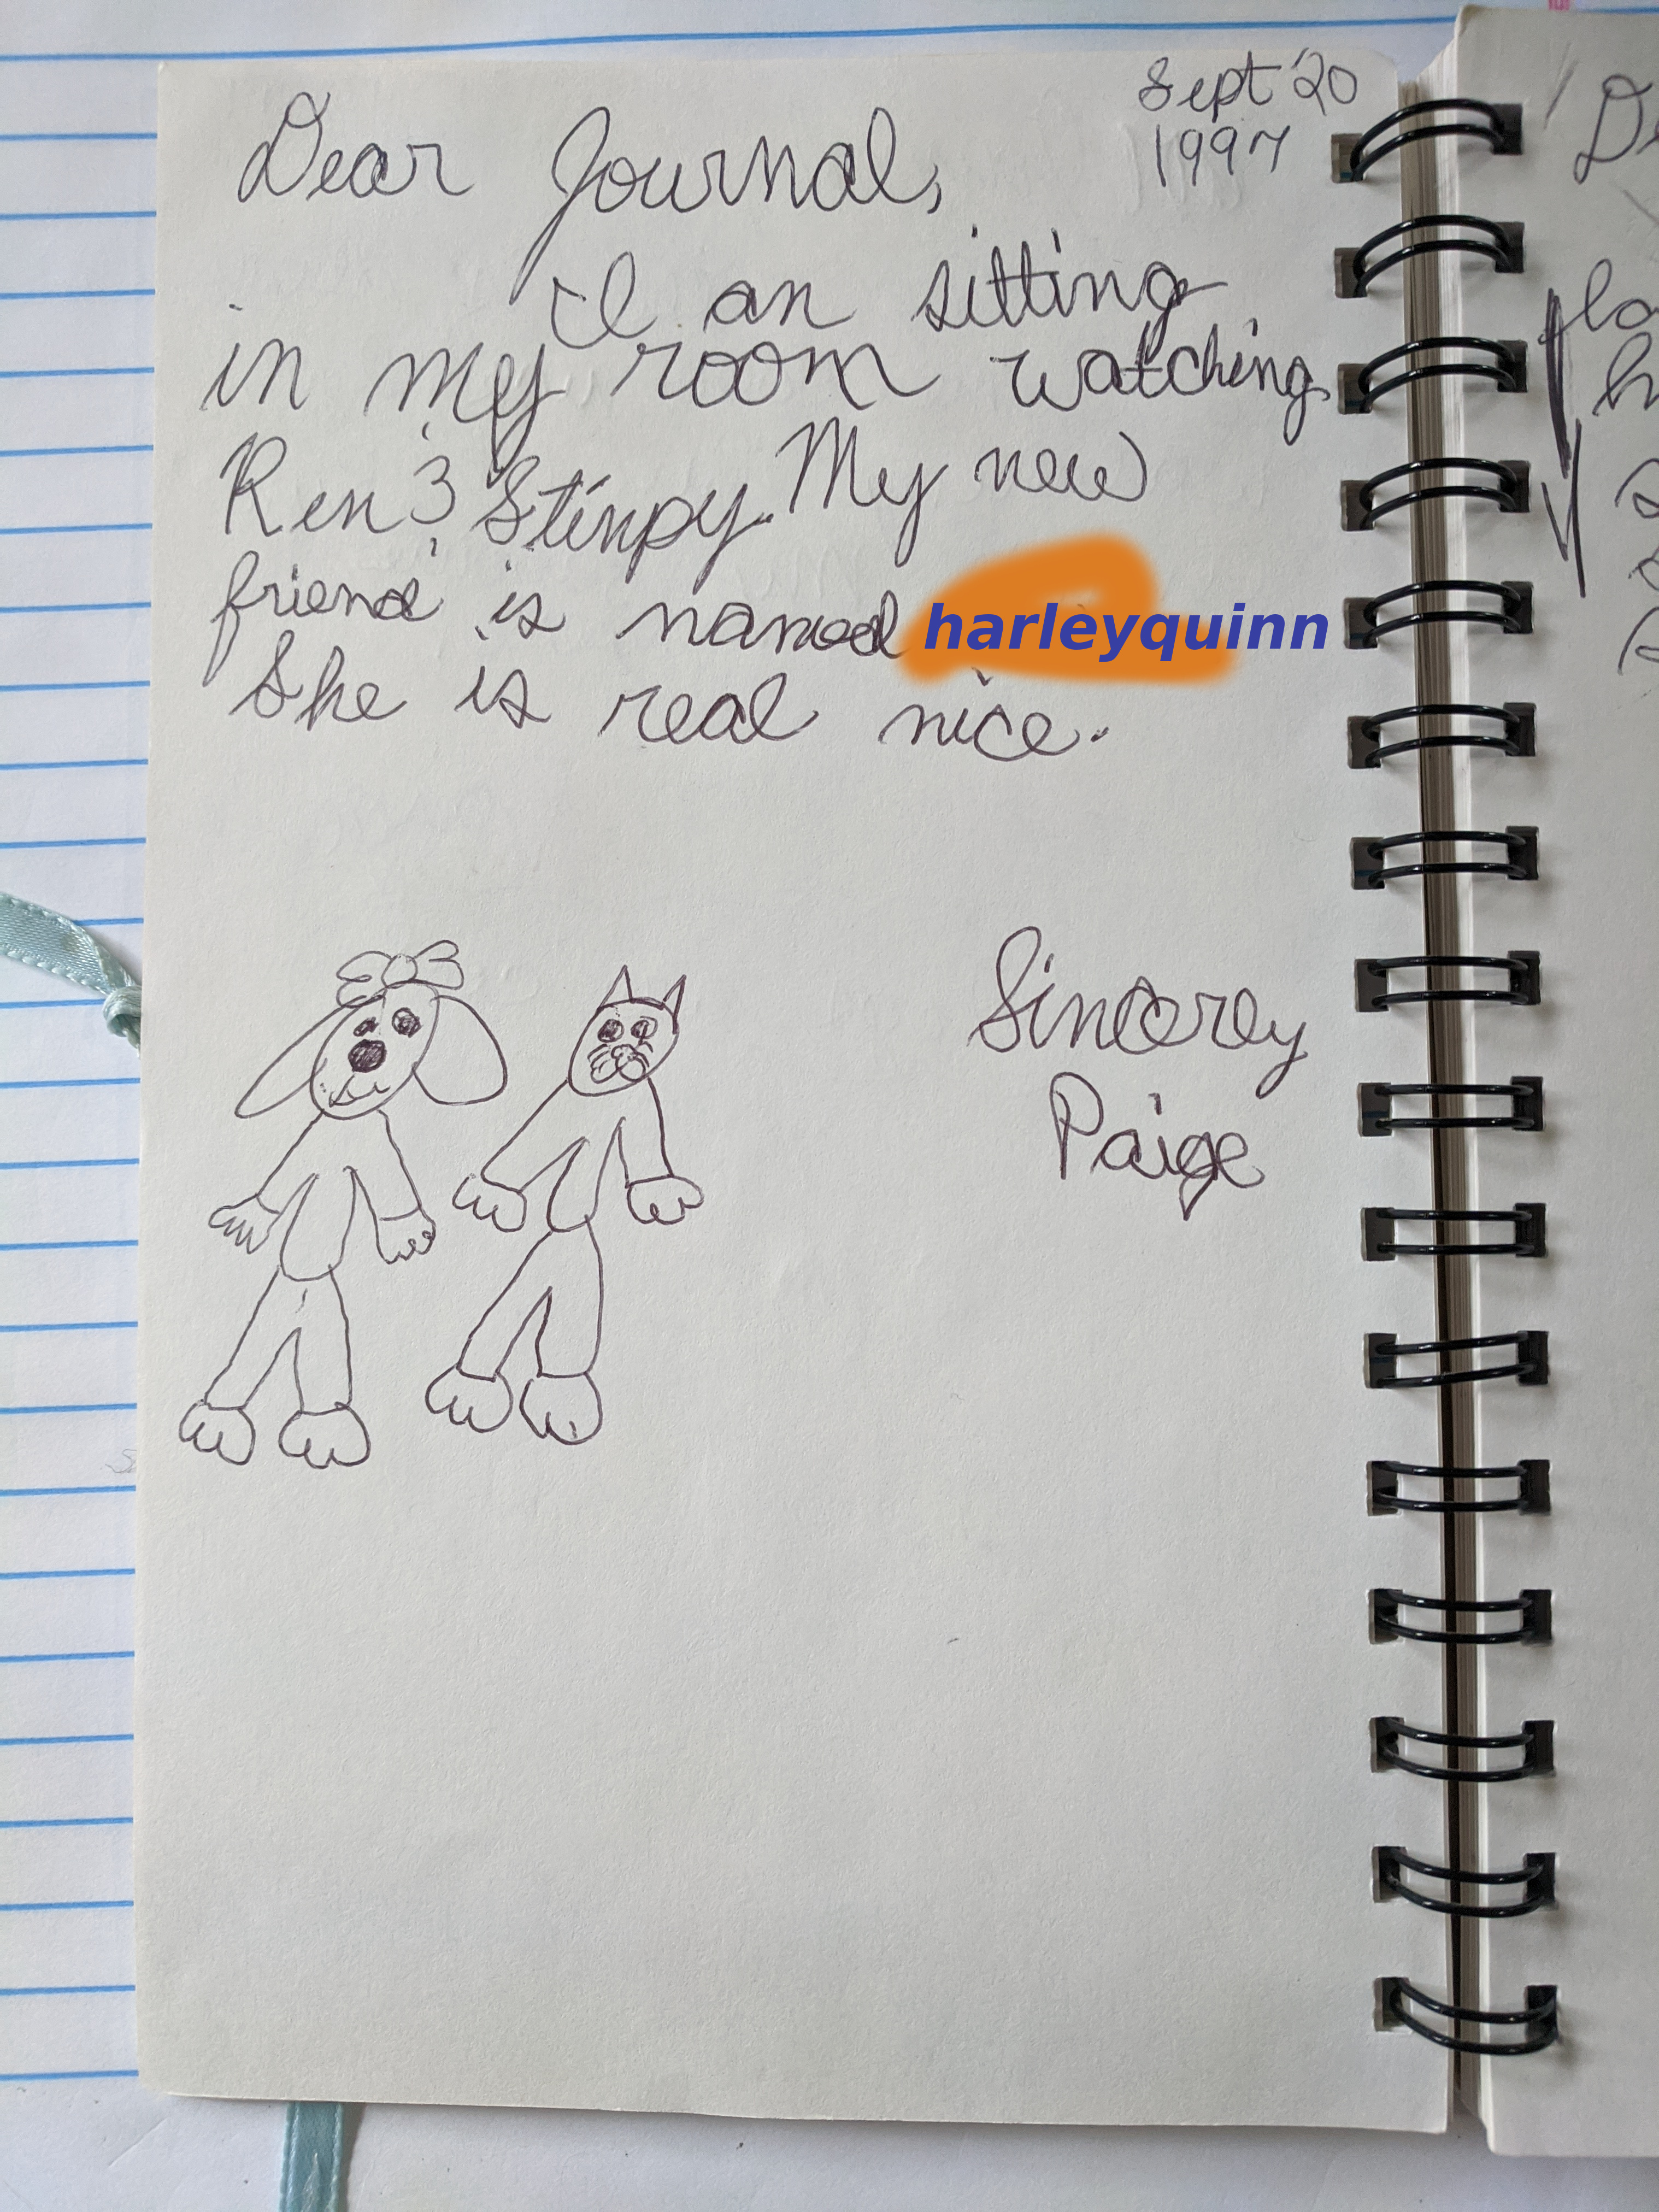 Sept 20
1997
Dear Journal,
I an sitting
in my room watching
Ren & Stinpy. My new
friend is named harleyquinn
She is real nice.
Sincerey
Paige